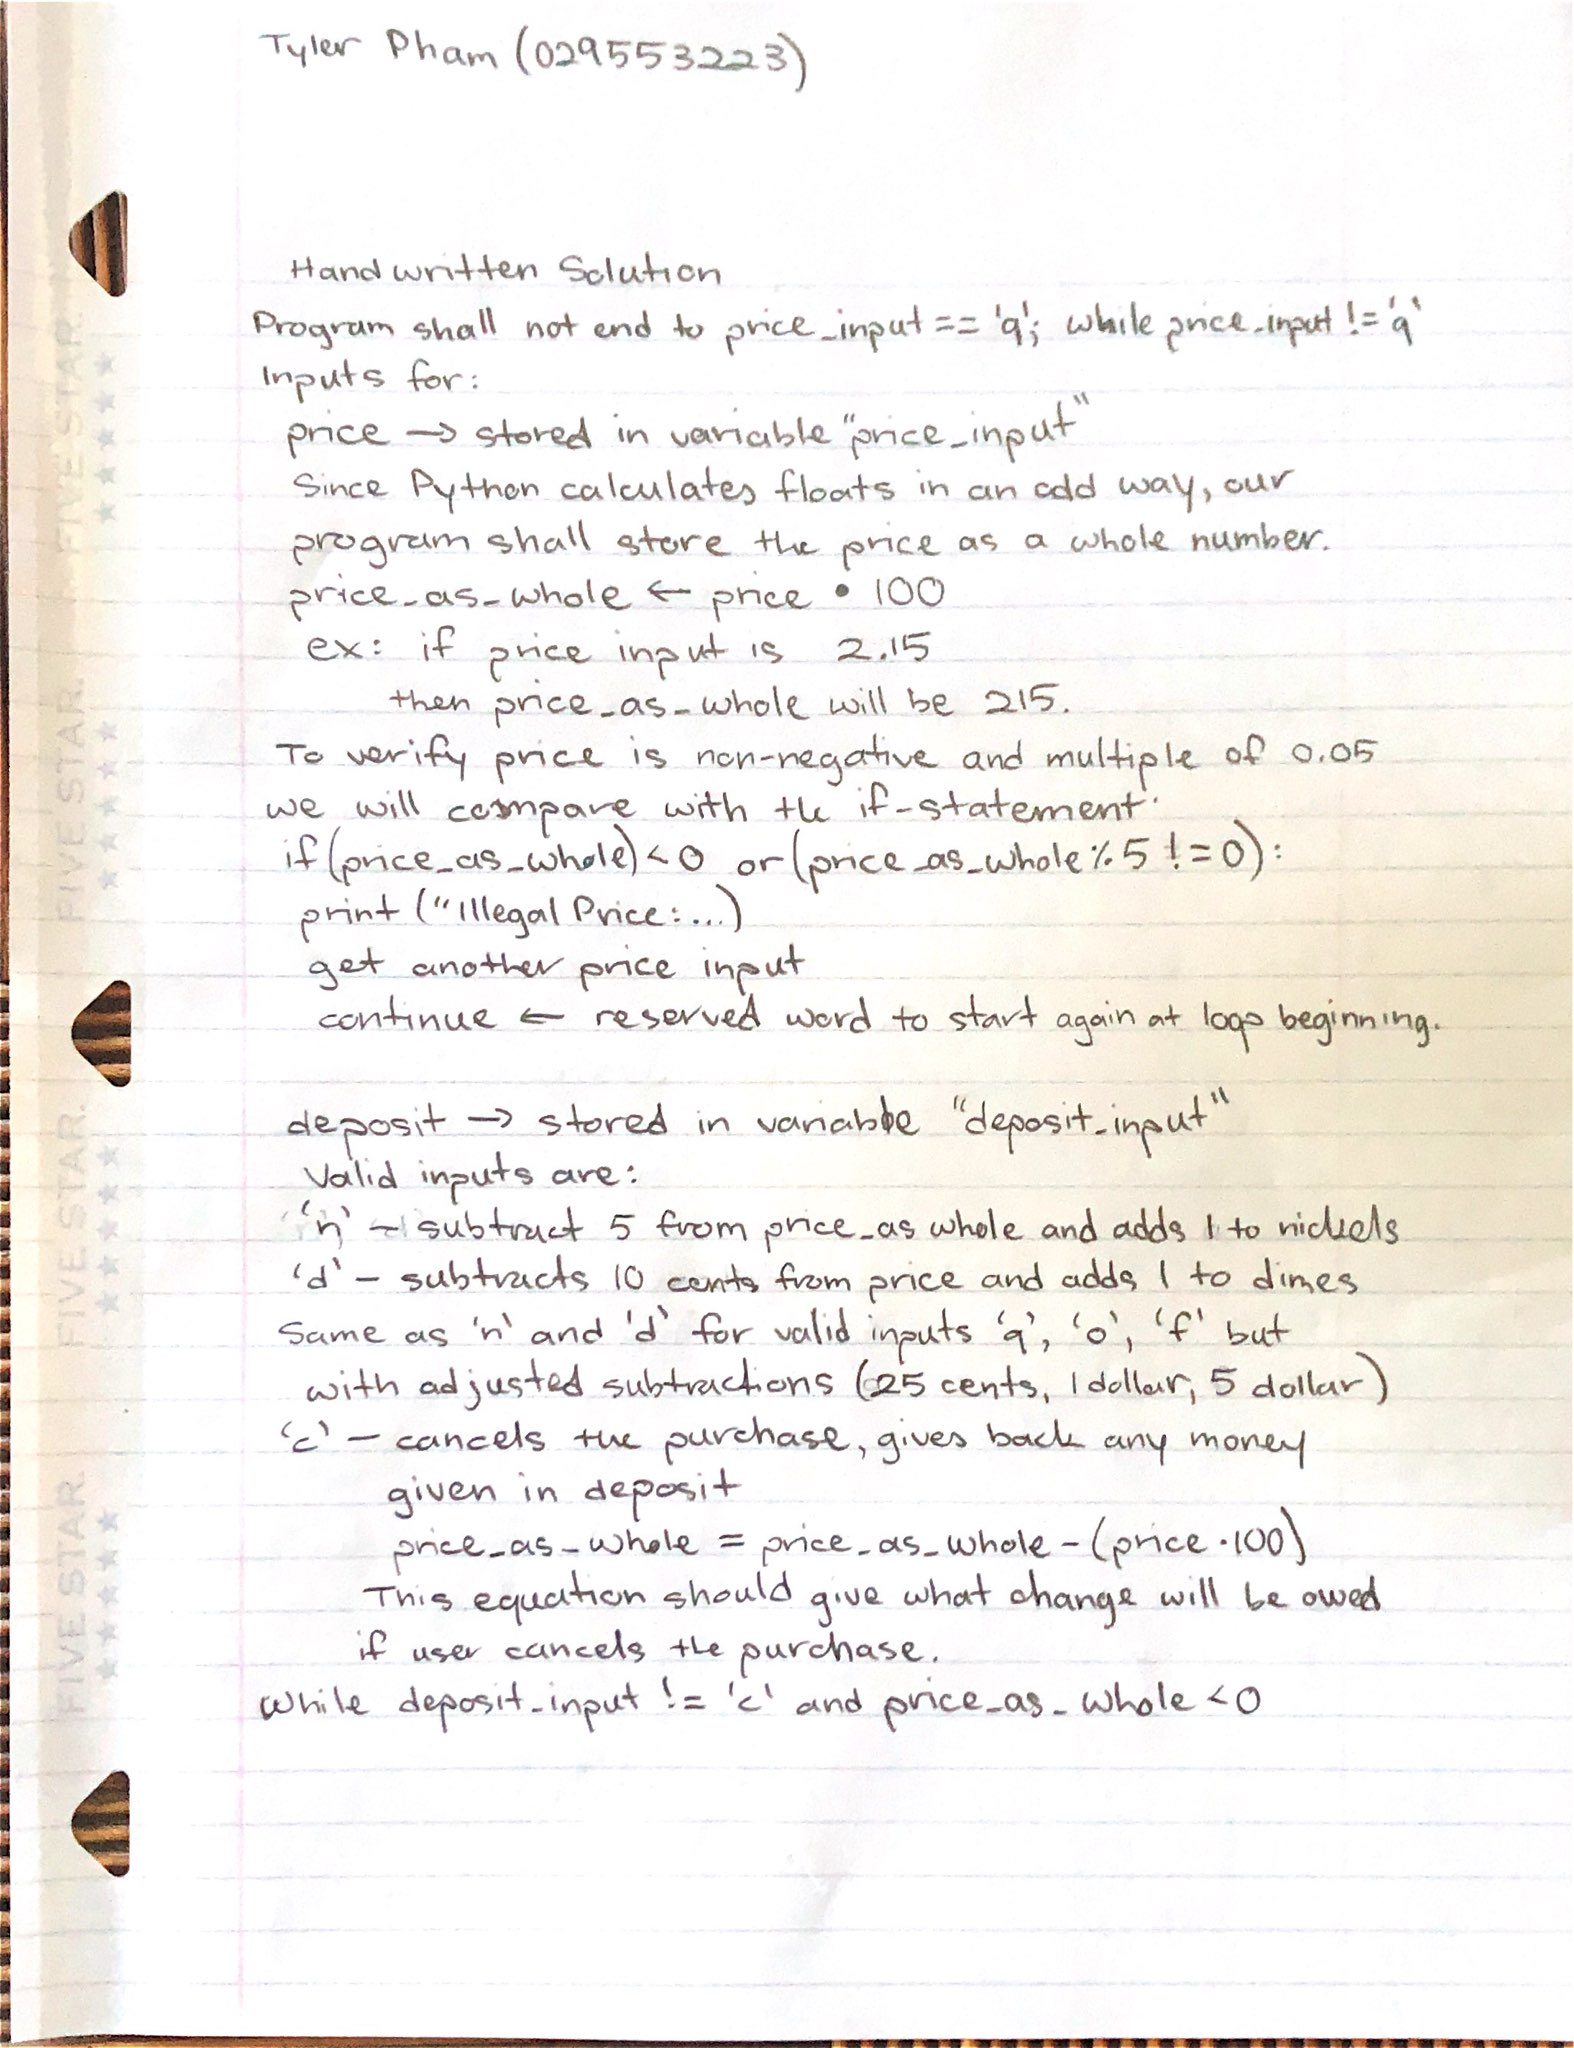 Tyler Pham (029553223)
Handwritten Solution
Program shall not end to price_input == 'q'; while price_input != 'q'
Inputs for:
price → stored in variable "price_input"
Since Python calculates floats in an odd way, our
program shall store the price as a whole number.
price_as_whole ← price • 100
ex: if price input is 2.15
then price_as_whole will be 215.
To verify price is non-negative and multiple of 0.05
we will compare with the if-statement:
if (price_as_whole) < 0 or (price_as_whole % 5 != 0):
print ("Illegal Price:...)
get another price input
continue ← reserved word to start again at loop beginning.
deposit → stored in variable "deposit_input"
Valid inputs are:
'n' - subtract 5 from price_as whole and adds 1 to nickels
'd' - subtracts 10 cents from price and adds 1 to dimes
Same as 'n' and 'd' for valid inputs 'q', 'o', 'f' but
with adjusted subtractions (25 cents, 1 dollar, 5 dollar)
'c' - cancels the purchase, gives back any money
given in deposit
price_as_whole = price_as_whole - (price · 100)
This equation should give what change will be owed
if user cancels the purchase.
While deposit_input != 'c' and price_as_whole < 0
FIVE STAR.
FIVE STAR.
FIVE STAR.
FIVE STAR.